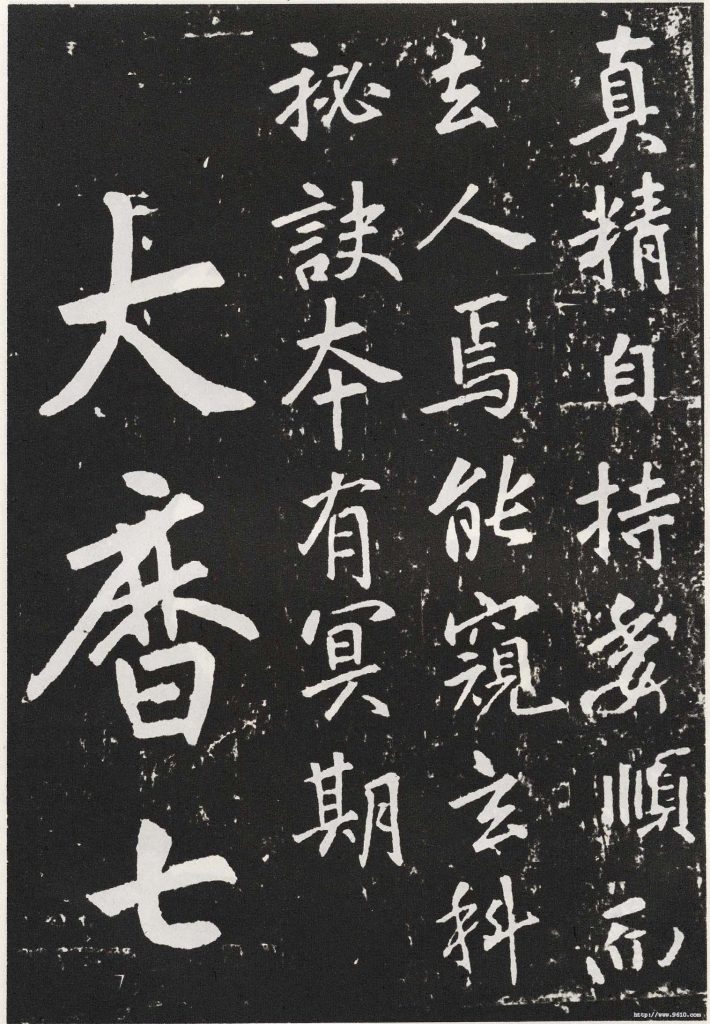 真精自持委順而
去人焉能窺玄科
祕訣本有冥期
大暦七
http://www.9610.com